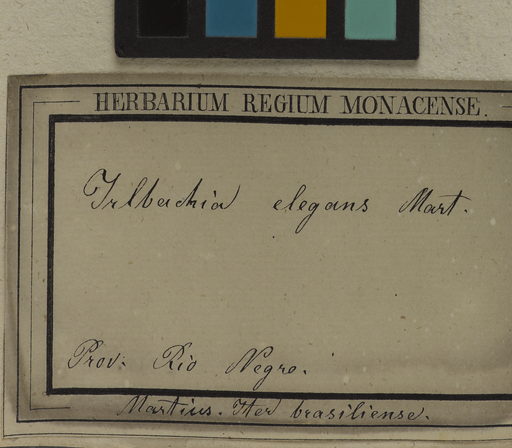 HERBARIUM REGIUM MONACENSE.
Irlbachia elegans Mart.
Prov. Rio Negro.
Martius. Iter brasiliense.